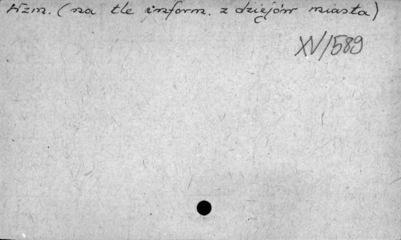 Wzm. (na tle inform. z dziejów miasta)
XV/589